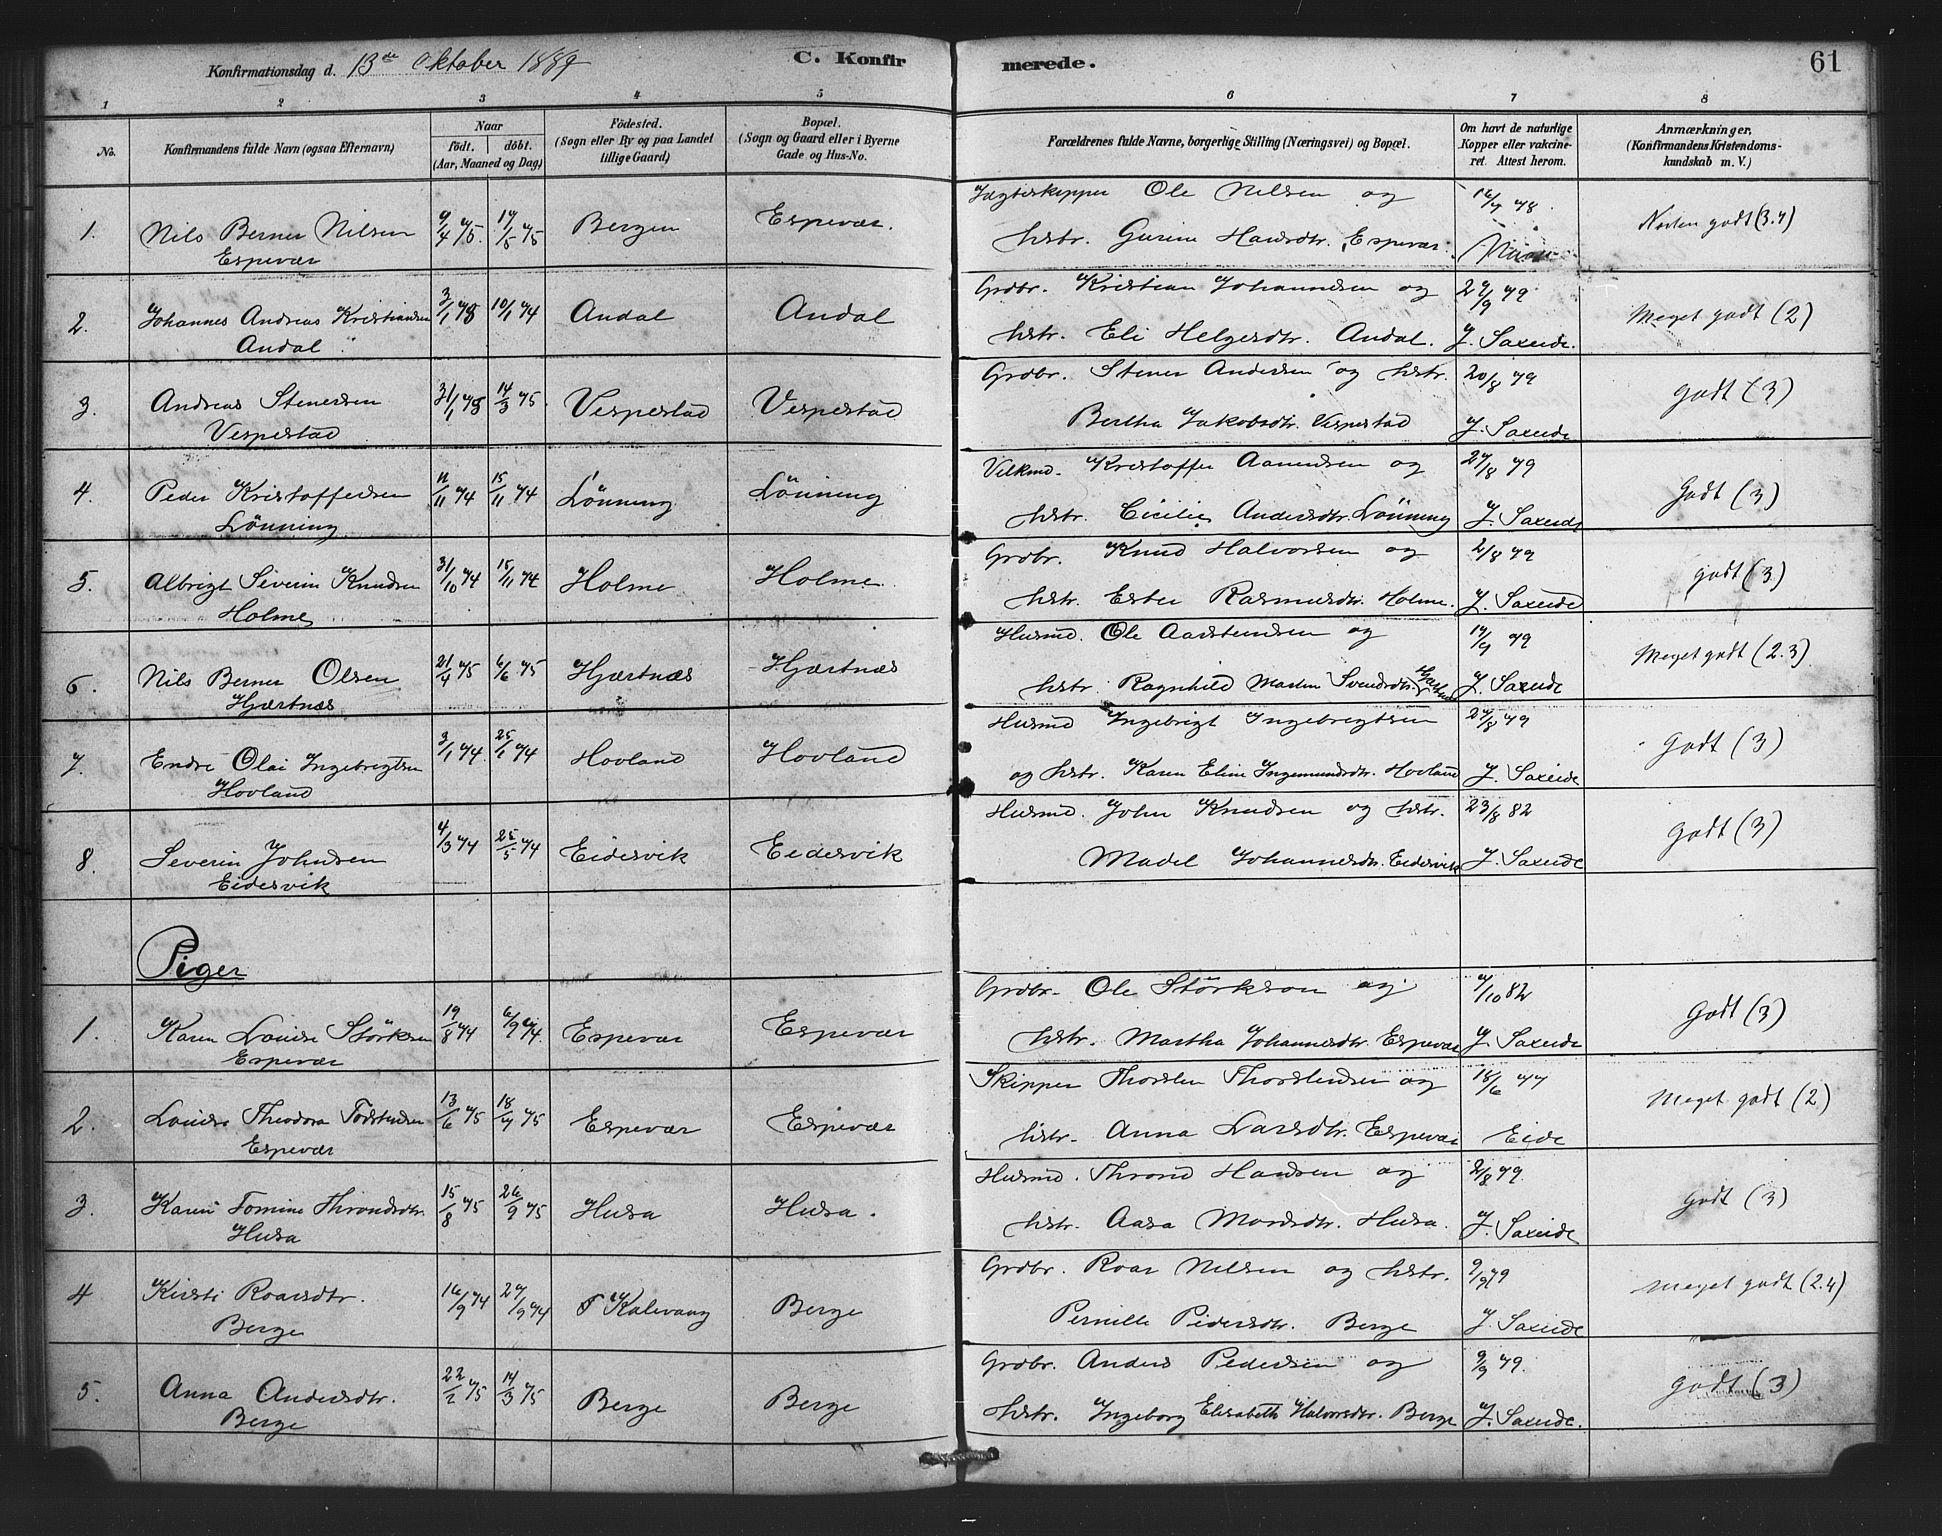 Konfirmationsdag d. 13de Oktober 1889
C. Konfirmerede.
61
1 2 3 4 5 6 7 8
No.
Konfirmandens fulde Navn (ogsaa Efternavn)
Naar
födt. döbt.
(Aar, Maaned og Dag)
Födested.
(Sogn eller By og paa Landet
tillige Gaard)
Bopæl.
(Sogn og Gaard eller i Byerne
Gade og Hus-No.
Forældrenes fulde Navne, borgerlige Stilling (Næringsvei) og Bopæl.
Om havt de naturlige
Kopper eller vakcine-
ret. Attest herom.
Anmærkninger,
(Konfirmandens Kristendoms-
kundskab m. V.)
1. Nils Berner Nilsen 9/4 75. 19/5 75 Bergen Espevær. Jægteskipper Ole Nilsen og 16/7 78.
Espevær hstr. Gurine Hansdtr. Espevær. Næsten godt (3.4)
2. Johannes Andreas Kristiansen 3/1 10/1 74 Andal Andal Grdbr. Kristian Johannesen og 79
Andal hstr. Eli Helgesdtr. Andal. J. Saxeide. Meget godt (2)
3. Andreas Stenersen 31/1 75 14/3 75 Vespestad Vespestad Grdbr. Stener Andersen og hstr. 20/8 79
Vespestad Bertha Jakobsdtr. Vespestad J. Saxeide godt (3)
4. Peder Kristoffersen 11/11 74 15/11 74 Lönning Lönning Kristoffer Aanensen og 27/8 79
Lönning hstr. Cicilie Andersdtr. Lönning J. Saxeide Godt (3)
5. Albrigt Severin Knudsen 31/10 74 15/11 74 Holme Holme. Grdbr. Knud Halvorsen og 2/8 79
Holme hstr. Ester Rasmusdtr. Holme. J. Saxeide godt (3)
6. Nils Berner Olsen 21/4 75 6/6 75 Hjærtnæs Hjærtnæs Husmd. Ole Aadstensen og 79
Hjærtnæs hstr. Ragnhild Marten Svendsdtr. Hjærtnæs J. Saxeide Meget godt (2.3)
7. Endre Olai Ingebrigtsen 3/1 74. 25/1 74 Hovland Hovland Husmd Ingebrigt Ingebrigtsen 27/8 79
Hovland og hstr. Karen Eline Ingemundsdtr. Hovland J. Saxeide Godt (3)
8. Severin Johnsen 4/3 74 25/5 74 Eidesvik Eidesvik Husmd John Knudsen og hstr. 23/8 82
Eidesvik Madel Johannesdtr. Eidesvik J. Saxeide Godt (3)
Piger
1. Karen Lovise Störksen 19/8 74 6/9 74. Espevær Espevær Grdbr. Ole Störkson og 7/10 82
Espevær hstr. Martha Johannesdtr. Espevær J. Saxeide Godt (3)
2. Lovise Theodora Torstensen 13/6 75 18/7 75 Espevær Espevær Skipper Thorsten Thorstensen og 18/6 77
Espevær hstr. Anna Larsdtr. Espevær Eide Meget godt (2)
3. Karen Tomine Throndsdtr. 15/8 75 26/9 75 Husa Husa. Husmd. Thrond Hansen og 2/8 79.
Husa hstr. Aasa Monsdtr. Husa. J. Saxeide Godt (3)
4 Kirsti Roarsdtr. 16/9 74 27/9 74 Kalevaag Berge Grdbr. Roar Nilsen og hstr. 9/9 79
Berge Pernille Pedersdtr. Berge J. Saxeide meget godt (2.4)
5. Anna Andersdtr. 22/2 75 14/3 75 Berge Berge Grdbr. Anders Pedersen og 9/9 79.
Berge hstr. Ingeborg Elisabeth Halvorsdtr. Berge J. Saxeide. godt (3)